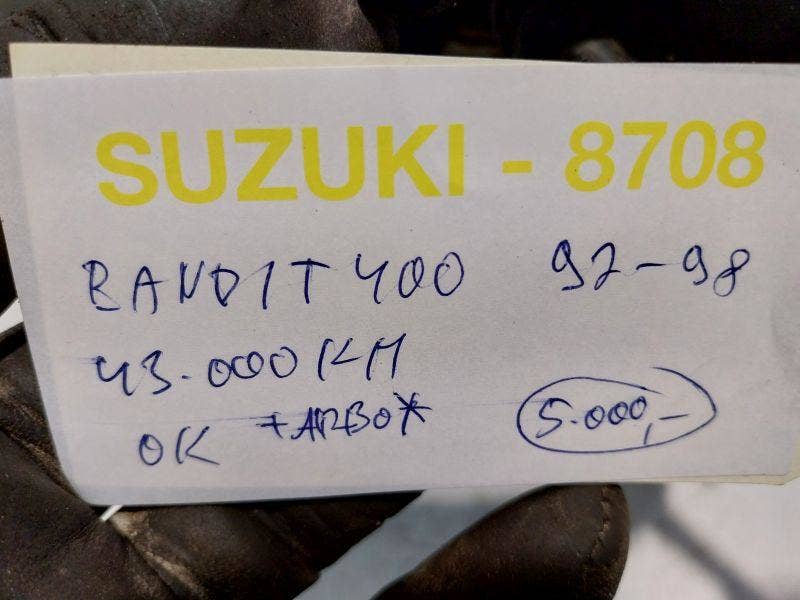 SUZUKI - 8708
BANDIT 400 92-98
43.000 KM
OK 5.000,-